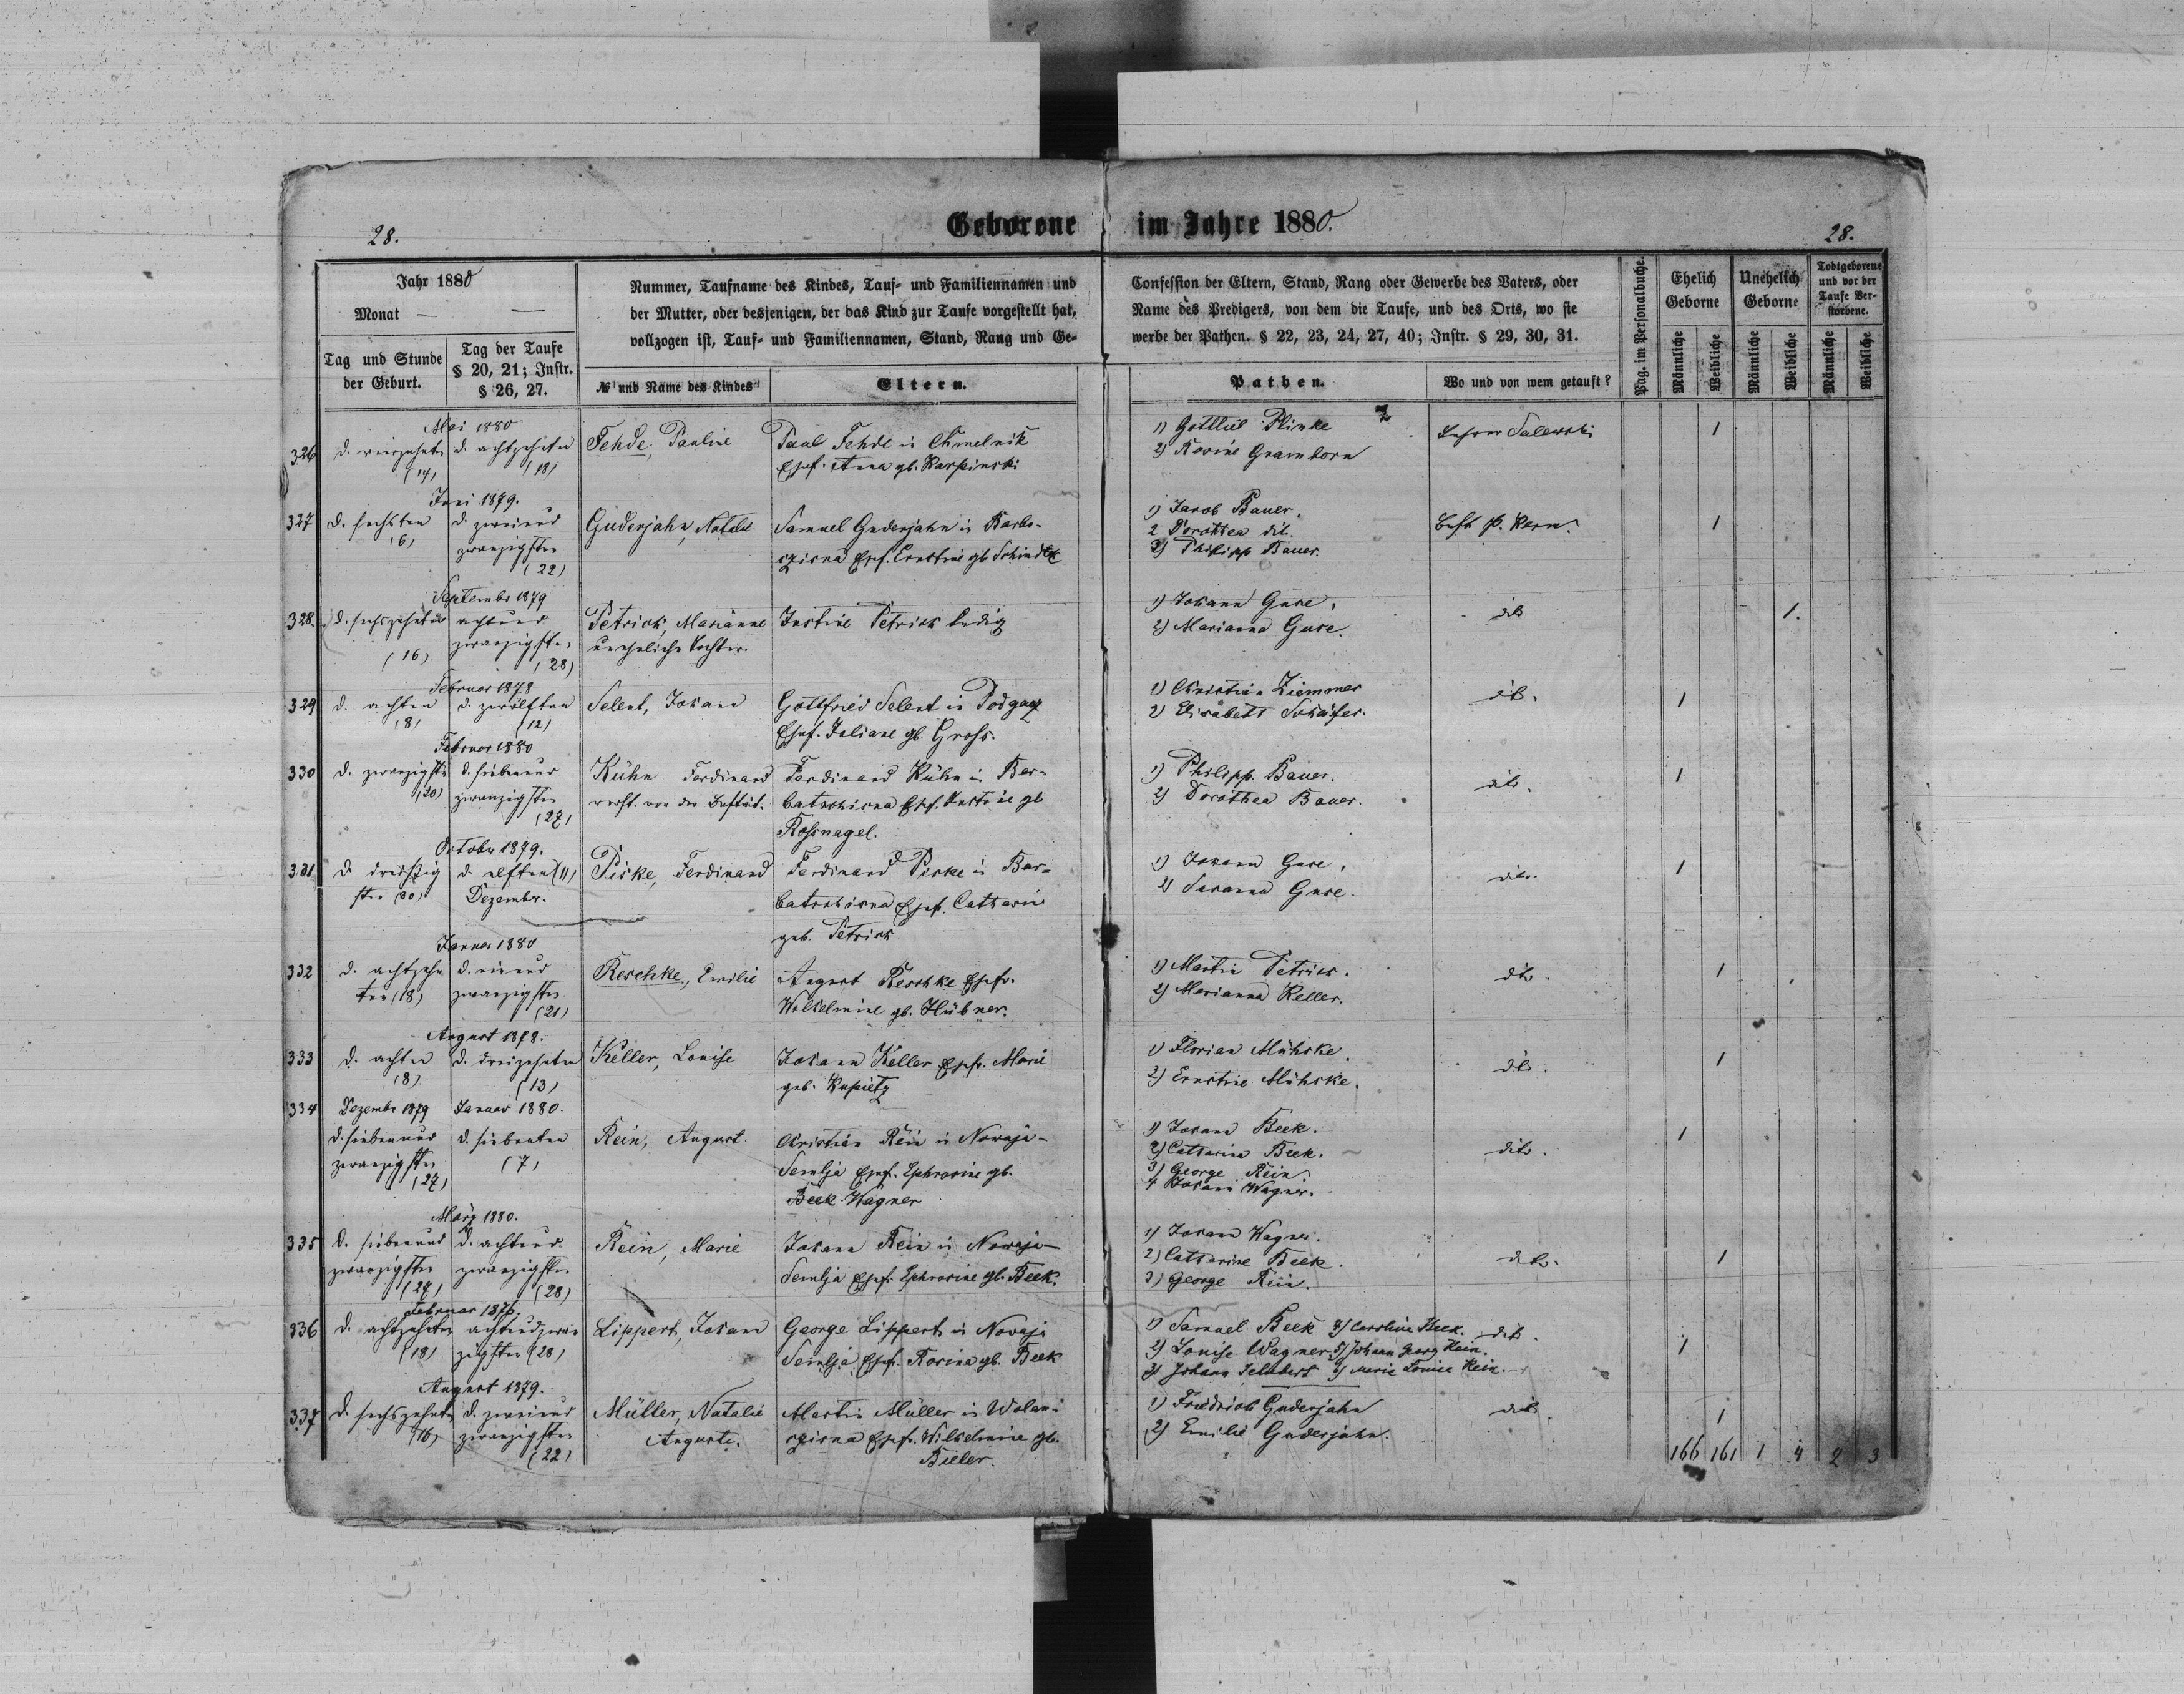 Geborene im Jahre 1880.
28.
28.
Jahr 1880
Monat — —
Tag und Stunde der Geburt.
Tag der Taufe § 20, 21; Instr. § 26, 27.
Nummer, Taufname des Kindes, Tauf- und Familiennamen und
der Mutter, oder desjenigen, der das Kind zur Taufe vorgestellt hat,
vollzogen ist, Tauf- und Familiennamen, Stand, Rang und Ge-
№ und Name des Kindes
Eltern.
Confession der Eltern, Stand, Rang oder Gewerbe des Vaters, oder
Name des Predigers, von dem die Taufe, und des Orts, wo sie
werbe der Pathen. § 22, 23, 24, 27, 40; Instr. § 29, 30, 31.
Pathen.
Wo und von wem getauft?
Pag. im Personalbuche.
Ehelich Geborne
Unehelich Geborne
Todtgeborene und vor der Taufe Verstorbene.
Männliche
Weibliche
Männliche
Weibliche
Männliche
Weibliche
Mai 1880
326 d. vierzehnten (14) d. achtzehnten (18)
Fehde, Pauline
Paul Fehde in Chmelnik
Ehef. Anna gb. Karpinski
1) Gottlieb Plinke
2) Rosine Gramborn
Lehrer Salewski
1
Juni 1879.
327 d. sechsten (6) d. zweiund
zwanzigsten (22)
Guderjahn, Natalie
Samuel Guderjahn in Barba-
szisna Ehef. Ernstine gb. Schindler
1) Jacob Bauer.
2 Dorothea dit.
3) Philipp Bauer.
Best P. Kern.
1
September 1879
328. d. sechszehnten (16) achtund
zwanzigsten (28)
Petrick, Marianne
uneheliche Tochter.
Justine Petrick ledig
1) Johann Guse,
2) Marianna Guse.
dito
1.
Februar 1878
329 d. achten (8) d. zwölften (12)
Selent, Johann
Gottfried Selent in Podgacz
Ehef. Juliane gb. Gross.
1) Christian Ziemmer
2) Elisabeth Schäfer.
dito.
1
Februar 1880
330 d. zwanzigsten (20) d. siebenund
zwanzigsten (27)
Kühn Ferdinand
Ferdinand Kühn in Bar-
batschisna Ehef. Justine gb
Rossnagel.
1) Philipp Bauer.
2) Dorothea Bauer.
dito.
1
October 1879.
331 d. dreissig
sten (30)
d. elften (11)
Dezember.
Piske, Ferdinand
Ferdinand Piske in Bar-
batschisna Ehef. Catharine
geb. Petrick
1) Johann Guse,
2) Susanna Guse.
dito.
1
Januar 1880
332 d. achtzehn
ten (18)
d. einund
zwanzigsten (21)
Reschke, Emilie
August Reschke Ehefr.
Wilhelmine gb. Hübner.
1) Martin Petrick.
2) Marianna Keller.
dito.
1
August 1878.
333 d. achten (8) d. dreizehnten (13)
Keller, Louise
Johann Keller Ehefr. Marie
geb. Kupietz
1) Florian Mühske.
2) Ernstine Mühske.
dito.
1
334 Dezember 1879 Januar 1880.
d. siebenund
zwanzigsten (27)
d. siebenten (7)
Rein, August
Christian Rein in Nowaja-
Semlja Ehef. Ephrosine gb.
Beek Wagner
1) Johann Beek.
2) Catharina Beek.
3) George Rein.
4 Johann Wagner.
dito.
1
März 1880.
335 d. siebenund
zwanzigsten (27)
d. achtund
zwanzigsten (28)
Rein, Marie
Johann Rein in Nowaja-
Semlja Ehef. Ephrosine gb. Beek.
1) Johann Wagner.
2) Catharine Beek.
3) George Rein.
dito.
1
Februar 1876.
336 d. achtzehnten (18) achtundzwan
zigsten (28)
Lippert, Johann
George Lippert in Nowaja
Semlja Ehef. Rosina gb. Beek
1) Samuel Beek 4) Caroline Beek.
2) Louise Wagner 5) Johann Georg Rein.
3) Johann Schubert 6) Marie Louise Rein
dito.
1
August 1879.
337 d. sechszehnten (16) d. zweiund
zwanzigsten (22)
Müller, Natalie
Auguste.
Martin Müller in Wolani
szisna Ehefr. Wilhelmine gb.
Bieler.
1) Friedrich Guderjahn
2) Emilie Guderjahn.
dito.
1
166 161 1 4 2 3